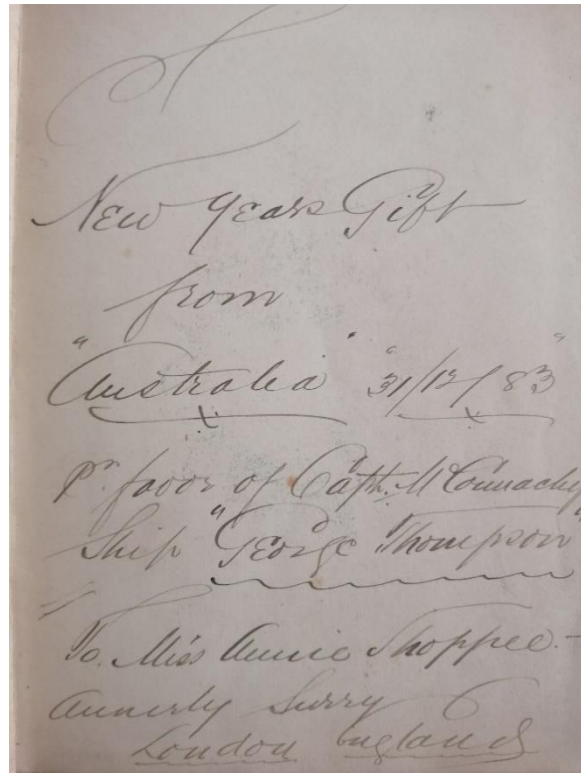 New Years Gift
from
"Australia" "31/12/83"
Pr. favor of Capt. McConnachy
Ship "George Thompson"
To. Miss Annie Shoppee. -
Annerly Surry
London England